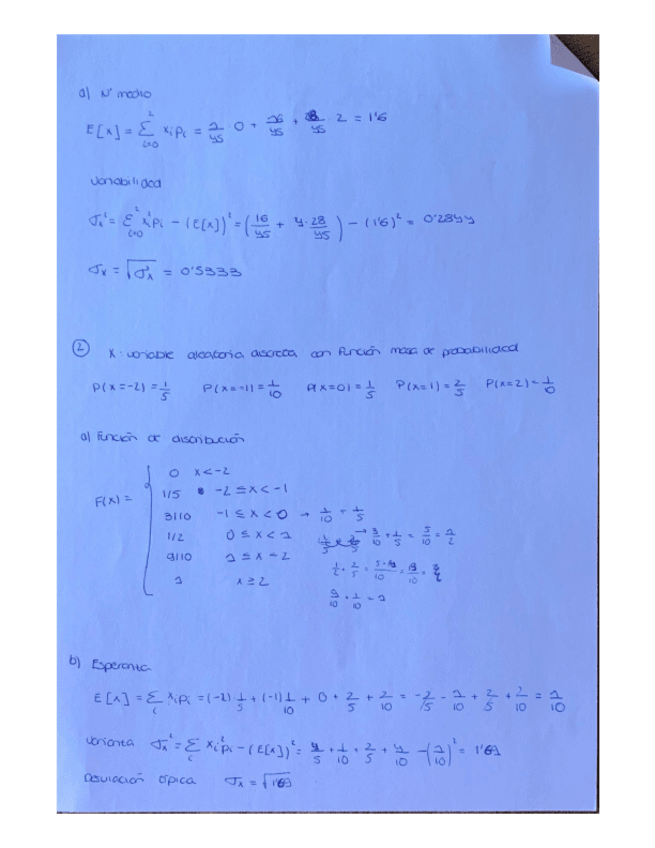 a) Nº medio
E[X] = Σ_{i=0}^{2} x_i p_i = 1/45 · 0 + 16/45 + 28/45 · 2 = 1'6
variabilidad
σ_x² = Σ_{i=0}^{2} x_i² p_i - (E[X])² = (16/45 + 4·28/45) - (1'6)² = 0'2844
σ_x = √σ_x² = 0'5333
② X: variable aleatoria discreta con función masa de probabilidad
P(X=-2) = 1/5 P(X=-1) = 1/10 P(X=0) = 1/5 P(X=1) = 2/5 P(X=2) = 1/10
a) Función de distribución
F(x) = {
0 x < -2
1/5 -2 ≤ x < -1
3/10 -1 ≤ x < 0 → 1/10 + 1/5
1/2 0 ≤ x < 1 → 3/10 + 1/5 = 5/10 = 1/2
9/10 1 ≤ x < 2 1/2 + 2/5 =
1 x ≥ 2 9/10 + 1/10 = 1
b) Esperanza
E[X] = Σ_i x_i p_i = (-2) 1/5 + (-1) 1/10 + 0 + 2/5 + 2/10 = -2/5 - 1/10 + 2/5 + 2/10 = 1/10
varianza σ_x² = Σ_i x_i² p_i - (E[X])² = 4/5 + 1/10 + 2/5 + 4/10 - (1/10)² = 1'69
Desviación típica σ_x = √1'69